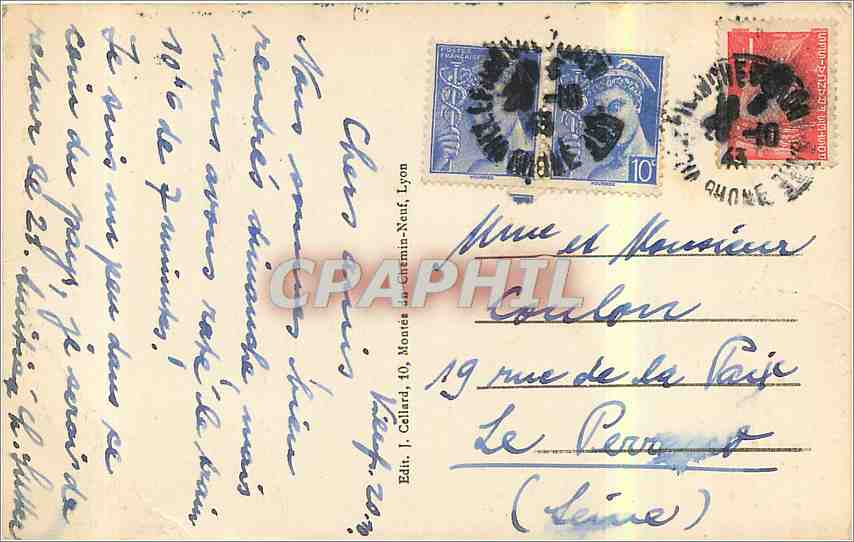 Villef. 20.2.
Chers amis
Nous sommes bien
rentrés dimanche, mais
nous avons raté le train
10h6 de 7 minutes!
Je suis un peu dans ce
coin du pays, je serai de
retour le 28.
Edit. J. Cellard, 10, Montée du Chemin-Neuf, Lyon
POSTES
FRANÇAISES
10c
Mme et Monsieur
Coulon
19 rue de la Paix
Le Perreux
(Seine)
CPAPHIL